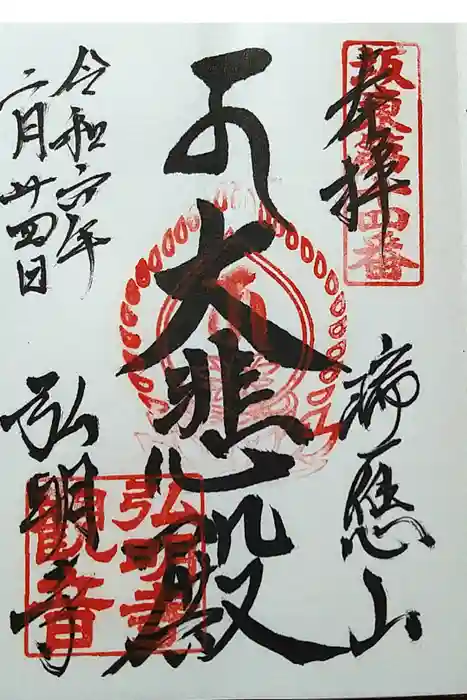 坂東第十四番
奉拝
瑞應山
大悲殿
令和六年
二月廿四日
弘明寺
弘明寺
觀音